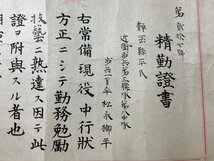 精勤證書
静岡縣平民
近衛歩兵第三聯隊第八中隊
歩兵一等卒 松永柳平
右常備現役中行状
方正ニシテ勤務勉勵
技藝ニ熟達ス因テ此
證ヲ附與スル者也